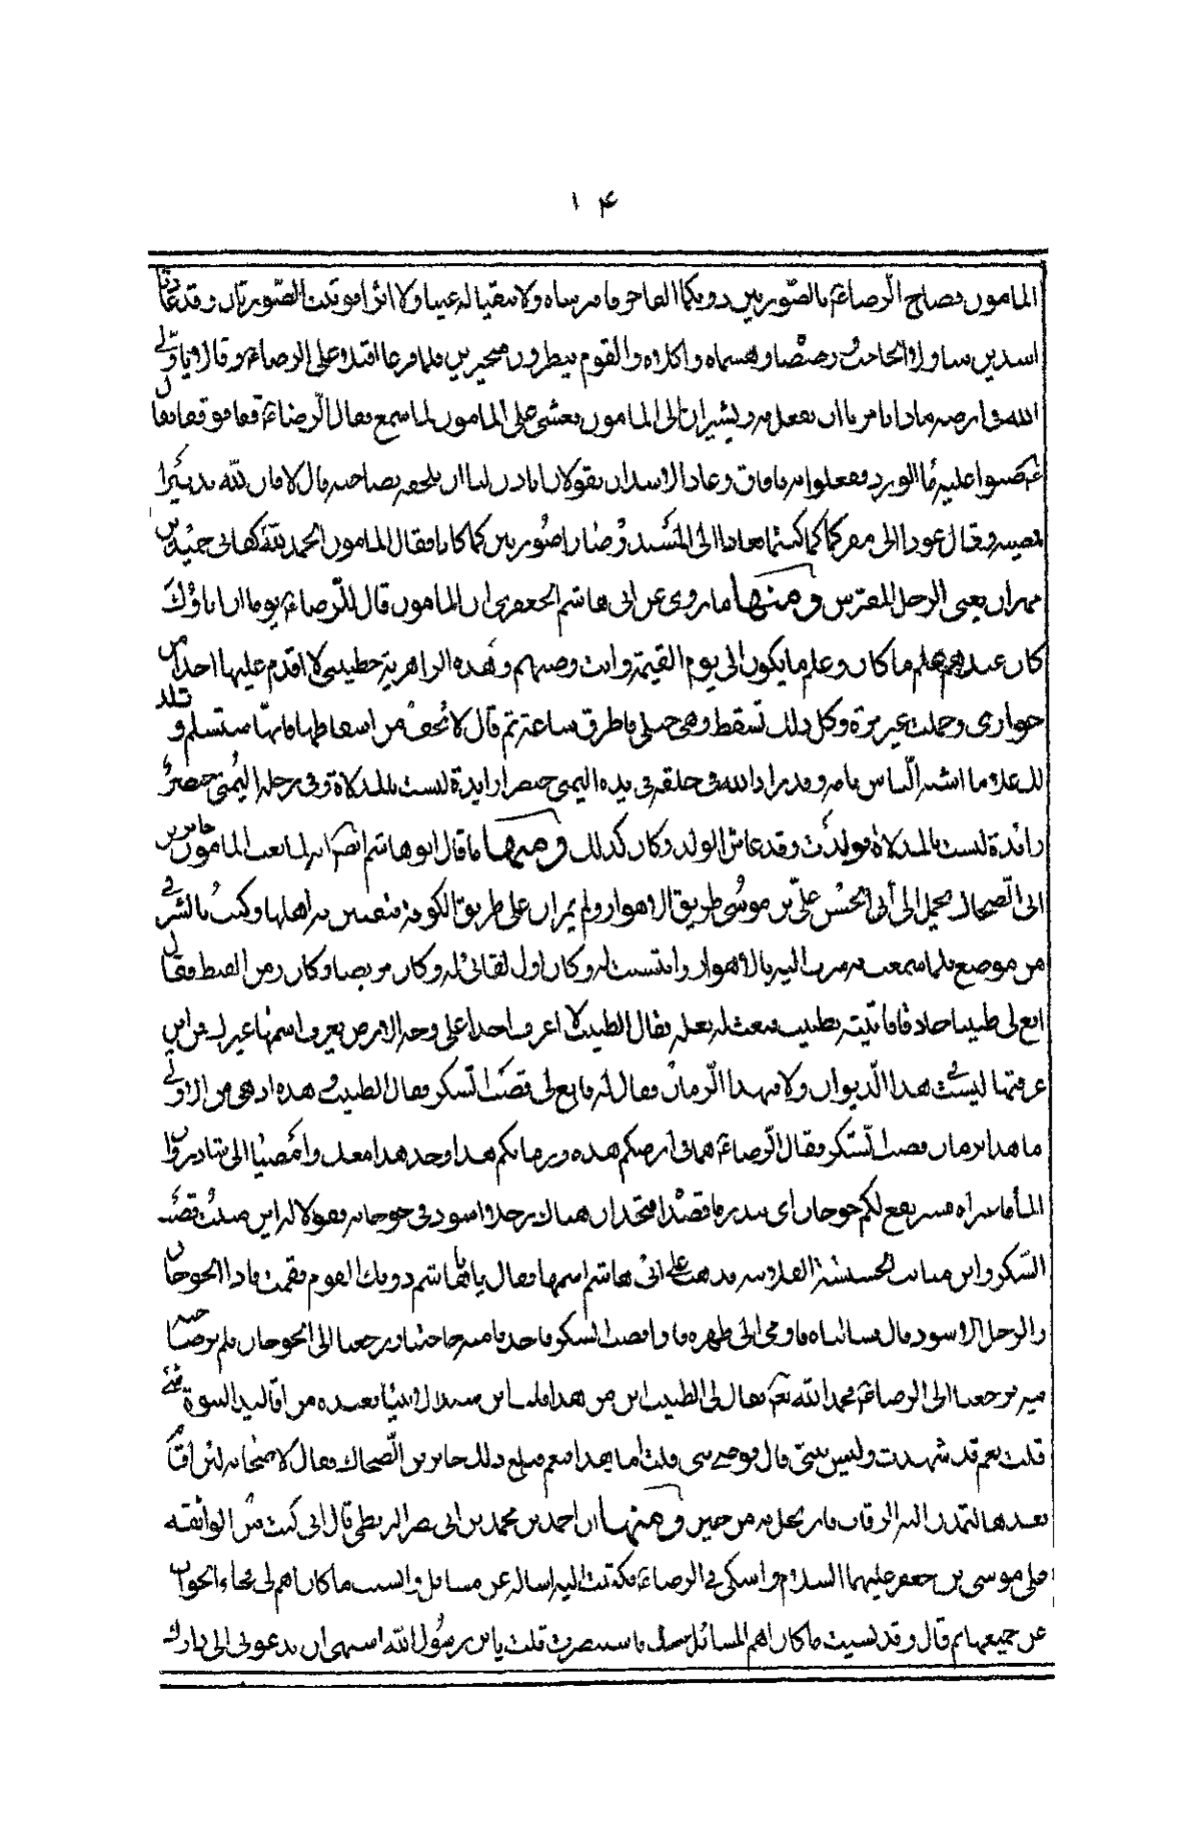 ١٤
المامون فصاح الرضاء بالصورتين دونكما الفاجر فافترساه ولا تبقيا له عينا ولا اثرا فوثبت الصورتان وقد عادتا
اسدين فتناولا الحاجب ورضضاه وهشماه واكلاه والقوم ينظرون متحيرين فلما فرغا اقبلا على الرضاء وقالا يا ولي
الله في ارضه ماذا تامرنا ان نفعل به ويشيران الى المامون فغشي على المامون لما سمع فقال الرضاء قفا فوقفا فقال
صبوا عليه ماء الورد ففعلوا به فافاق وعاد الاسدان يقولان اتاذن لنا ان نلحقه بصاحبه قال لا فان لله تدبيرا
وقال عودا الى مقركما كما كنتما فعادا الى المسند وصارا صورتين كما كانا فقال المامون الحمد لله كفاني حميد بن
مهران يعني الرجل المفترس ومنها ما روي عن ابي هاشم الجعفري ان المامون قال للرضاء يوما ان اباؤك
كان عندهم علم ما كان وعلم ما يكون الى يوم القيمة وانت وصيهم وهذه الزاهرية حظيتي لا اقدم عليها احدا من
جواري وحملت غير مرة وكل ذلك تسقط وهي حبلى فاطرق ساعة ثم قال لا تخف من اسقاطها فانها ستسلم وتلد
لك غلاما اشبه الناس بامه وقد زاد الله في خلقه في يده اليمنى خنصرا زايدة ليست بالمدلاة وفي رجله اليمنى خنصر
زائدة ليست بالمدلاة فولدت وقد عاش الولد وكان كذلك ومنها ما قال ابو هاشم ايضا انه لما بعث المامون جابر بن
ابي الضحاك ليحمل الى ابي الحسن علي بن موسى طريق الاهواز ولم يمر ان على طريق الكوفة فيفتتن به اهلها وكنت بالشرقي
من موضع فلما سمعت به سرت اليه بالاهواز وانتسبت له وكان اول لقائي له وكان مريضا وكان زمن القيظ فقال
ابغ لي طبيبا حاذقا فاتيته بطبيب فنعت له بقلة فقال الطبيب لا اعرف احدا على وجه الارض يعرف اسمها غيرك فمن اين
عرفتها ليست في هذا الديوان ولا بهذا الزمان فقال له فابغ لي قصب السكر فقال الطبيب وهذه ادهى من الاولى
ما هذا بزمان قصب السكر فقال الرضاء هما في ارضكم هذه وزمانكم هذا وخذ هذا معك وامضيا الى شاذروان
الماء فاعبراه فسيرفع لكم جوخان اي بيدر فاقصدا فتجدان هناك رجلا اسود في جوخانه فقولا له اين منبت قصب
السكر واين منابت الحشيشة الفلانية فذهب على ابي هاشم اسمها فقال يا ابا هاشم دونك القوم فقمت فاذا الجوخان
والرجل الاسود قال فسالناه فاومى الى ظهره فاذا قصب السكر فاخذنا منه حاجتنا ورجعنا الى الجوخان فلم نر صاحبه
فيه فرجعنا الى الرضاء فحمد الله تعالى فقال لي الطبيب ابن من هذا قلت ابن سيد الانبياء فعنده من اقاليد النبوة شيء
قلت نعم قد شهدت وليس بنبي قال فوصي نبي قلت اما هذا فنعم فبلغ ذلك جابر بن الضحاك فقال لاصحابه لئن اقام
بعدها لتمدن اليه الرقاب فارتحل به من حين ومنها ان احمد بن محمد بن ابي نصر البزنطي قال اني كنت من الواقفة
على موسى بن جعفر عليهما السلام واشك في الرضاء فكتبت اليه اساله عن مسائل ونسيت ما كان اهم لي فجاء الجواب
عن جميعها ثم قال وقد نسيت ما كان اهم المسائل عندك فاستبصرت قلت يابن رسول الله اشتهي ان تدعوني الى دارك